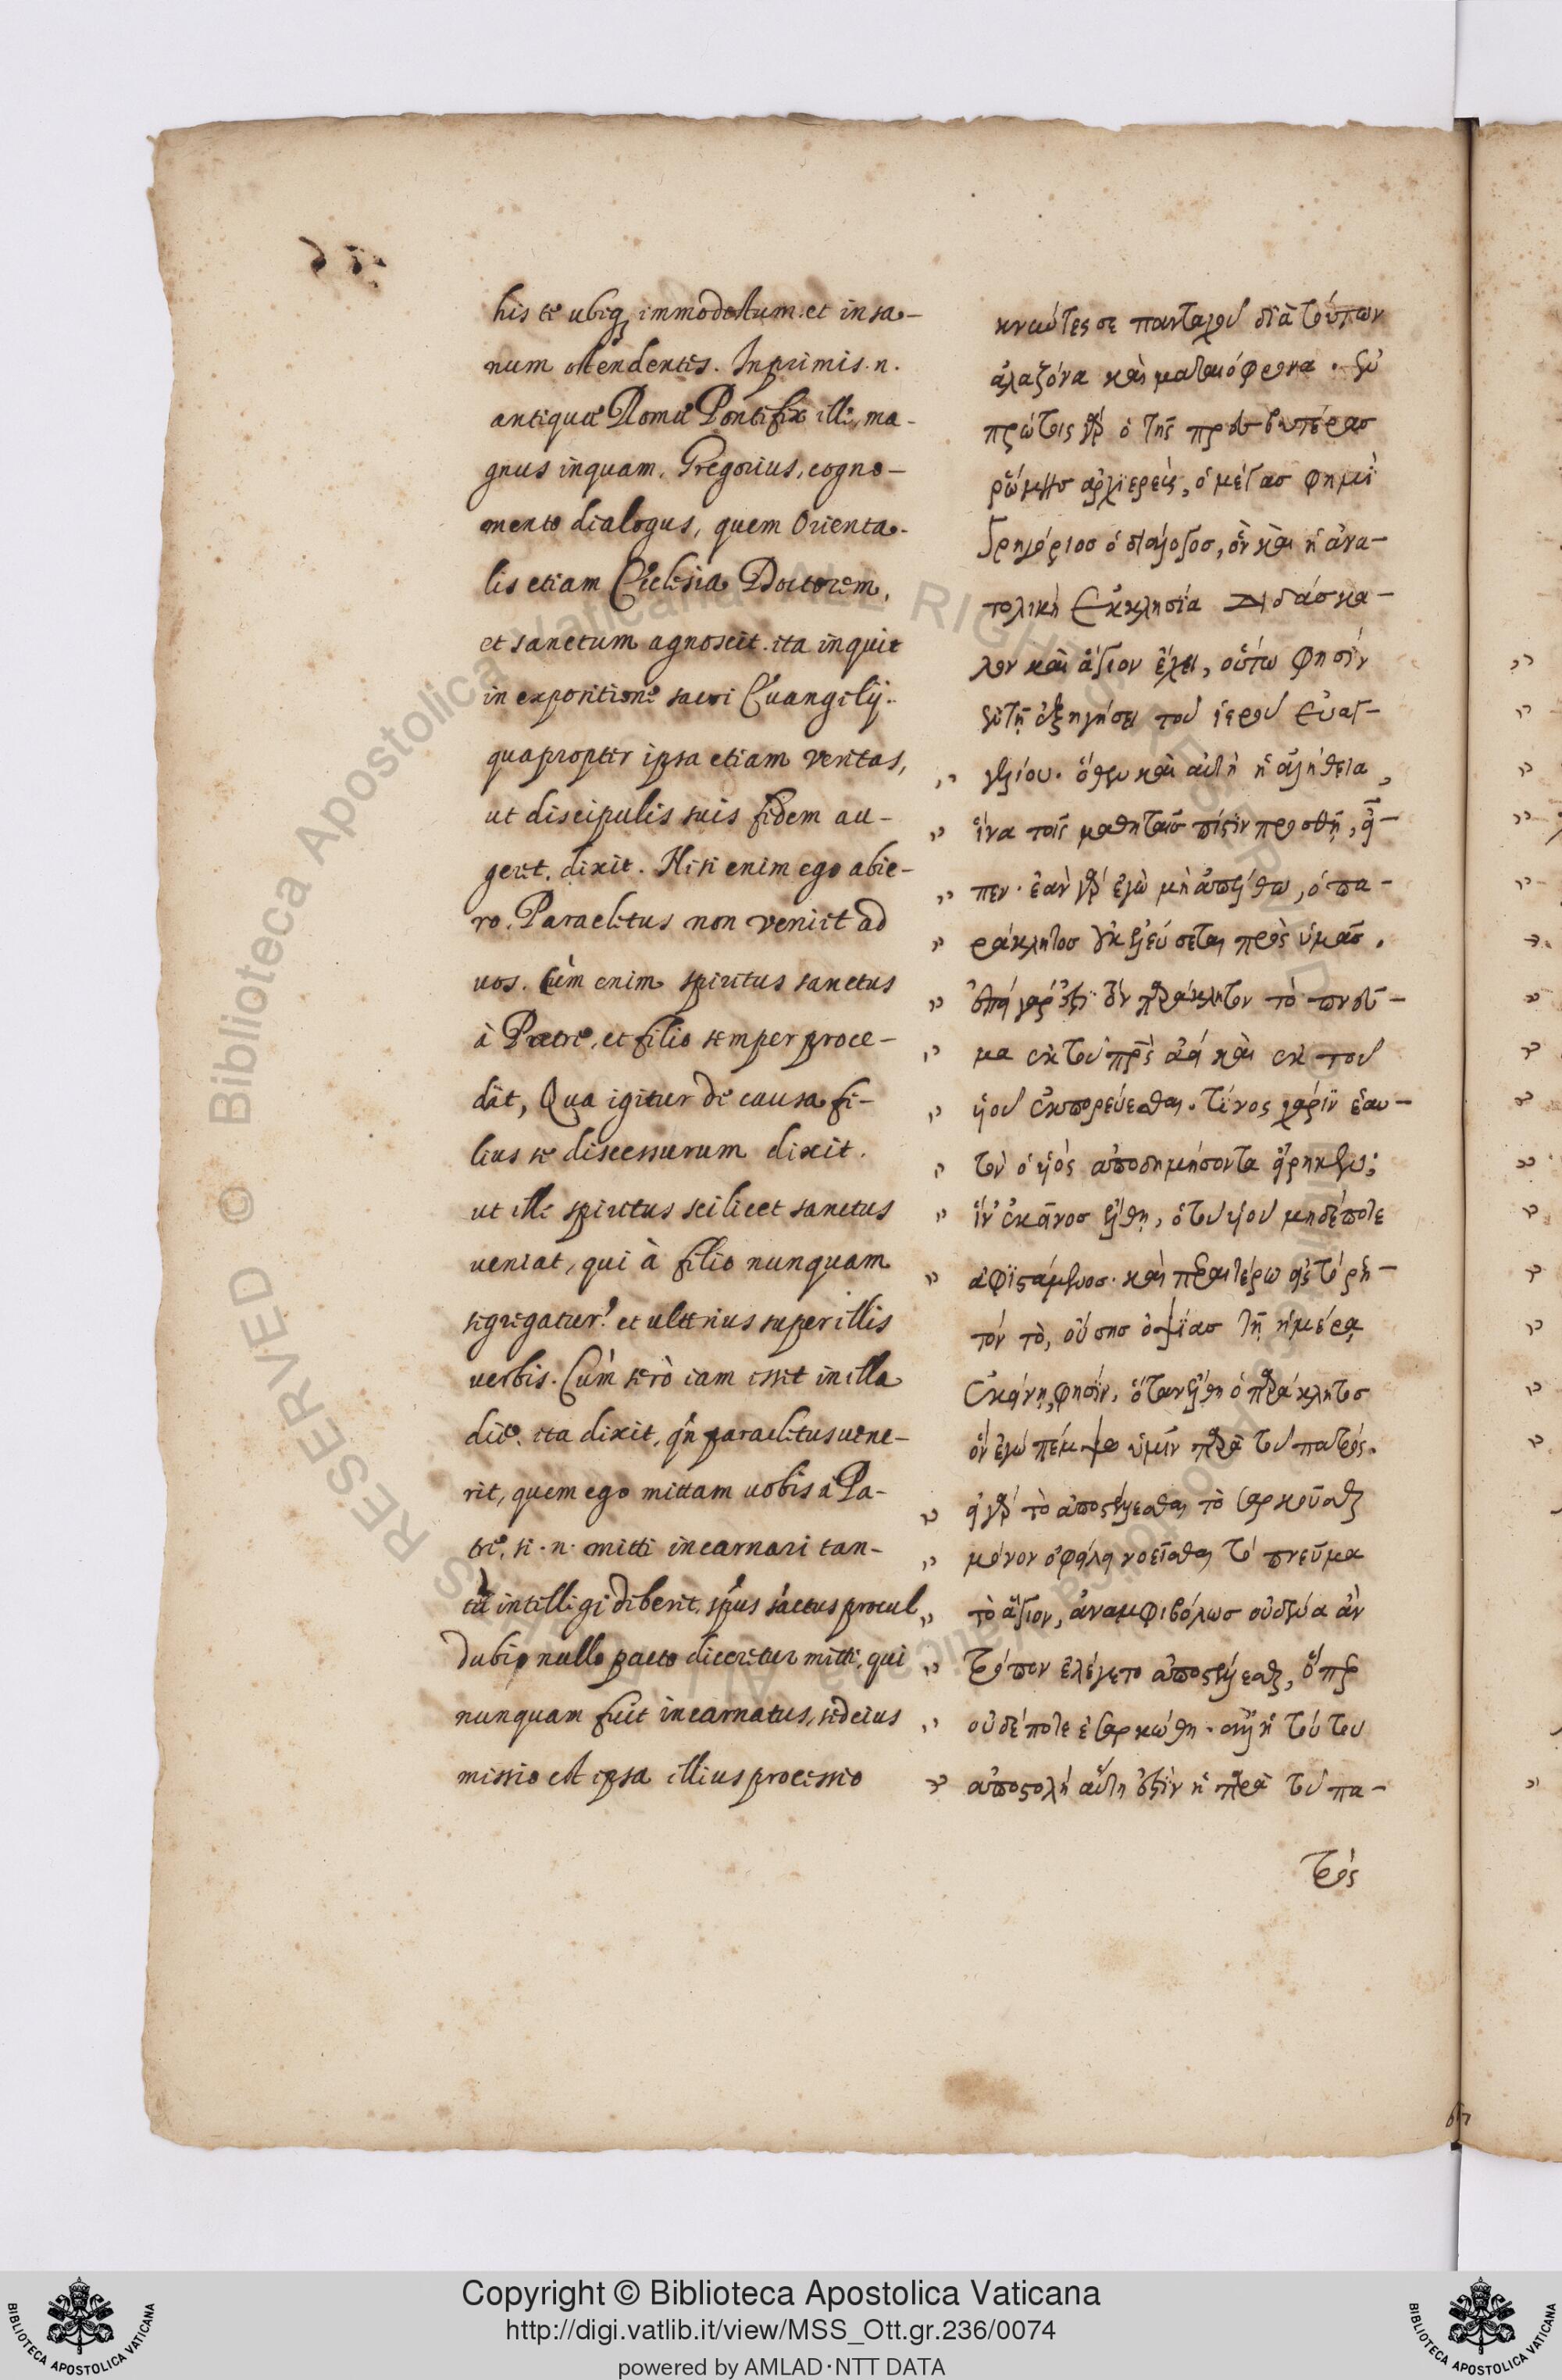 his te ubiq; immodestum et insa-
num ostendentes. Inprimis .n.
antiquæ Romæ Pontifex ille, ma-
gnus inquam, Gregorius, cogno-
mento dialogus, quem Orienta-
lis etiam Ecclesia Doctorem,
et sanctum agnoscit. ita inquit
in expositione sacri Euangelij.
quapropter ipsa etiam veritas,
ut discipulis suis fidem au-
geret, dixit. Nisi enim ego abie-
ro, Paraclitus non veniet ad
uos. Cùm enim spiritus sanctus
à Patre, et filio semper proce-
dat, Qua igitur de causa fi-
lius se discessurum dixit.
ut ille spiritus scilicet sanctus
veniat, qui à filio nunquam
segregatur? et ulterius super illis
verbis. Cùm serò iam esset in illa
die. ita dixit, qñ paraclitus uene-
rit, quem ego mittam uobis à Pa-
tre, si .n. mitti incarnari tan-
tũ intelligi deberet, spũs sãctus procul
dubio nullo pacto diceretur mitti, qui
nunquam fuit incarnatus, sed eius
missio est ipsa illius processio
πανταχοῦ διὰ τούτων
ἀλαζόνα καὶ ματαιόφρονα. ἐν
πρώτοις γὰρ ὁ τῆς πρεσβυτέρας
ῥώμης ἀρχιερεὺς, ὁ μέγας φημὶ
Γρηγόριος ὁ διάλογος, ὃν καὶ ἡ ἀνα-
τολικὴ Ἐκκλησία διδάσκα-
λον καὶ ἅγιον ἔχει, οὕτω φησὶν
ἐν τῇ ἐξηγήσει τοῦ ἱεροῦ Εὐαγ-
γελίου. ὅθεν καὶ αὐτὴ ἡ ἀλήθεια,
ἵνα τοῖς μαθηταῖς πίστιν προσθῇ, εἶ-
πεν. ἐὰν γὰρ ἐγὼ μὴ ἀπέλθω, ὁ πα-
ράκλητος οὐκ ἐλεύσεται πρὸς ὑμᾶς.
τὸν παράκλητον τὸ πνεῦ-
μα ἐκ τοῦ πρς ἀεὶ καὶ ἐκ τοῦ
υἱοῦ ἐκπορεύεσθαι. τίνος χάριν ἑαυ-
τὸν ὁ υἱὸς ἀποδημήσοντα εἴρηκεν;
ἵν' ἐκεῖνος ἔλθῃ, ὁ τοῦ υἱοῦ μηδέποτε
ἀφιστάμενος. καὶ περαιτέρω εἰς τὸ ῥη-
τόν τὸ, οὔσης ὀψίας τῇ ἡμέρᾳ
ἐκείνῃ, φησὶν, ὅταν ἔλθῃ ὁ παράκλητος
ὃν ἐγὼ πέμψω ὑμῖν παρὰ τοῦ πατρός.
εἰ γὰρ τὸ ἀποστέλλεσθαι τὸ σαρκοῦσθαι
μόνον ὀφείλει νοεῖσθαι τὸ πνεῦμα
τὸ ἅγιον, ἀναμφιβόλως οὐδένα ἂν
τρόπον ἐλέγετο ἀποστέλλεσθαι, ὅπερ
οὐδέποτε ἐσαρκώθη. ἀλλ' ἡ τούτου
ἀποστολὴ αὕτη ἐστὶν ἡ παρὰ τοῦ πα-
τρὸς
Copyright © Biblioteca Apostolica Vaticana
http://digi.vatlib.it/view/MSS_Ott.gr.236/0074
powered by AMLAD·NTT DATA